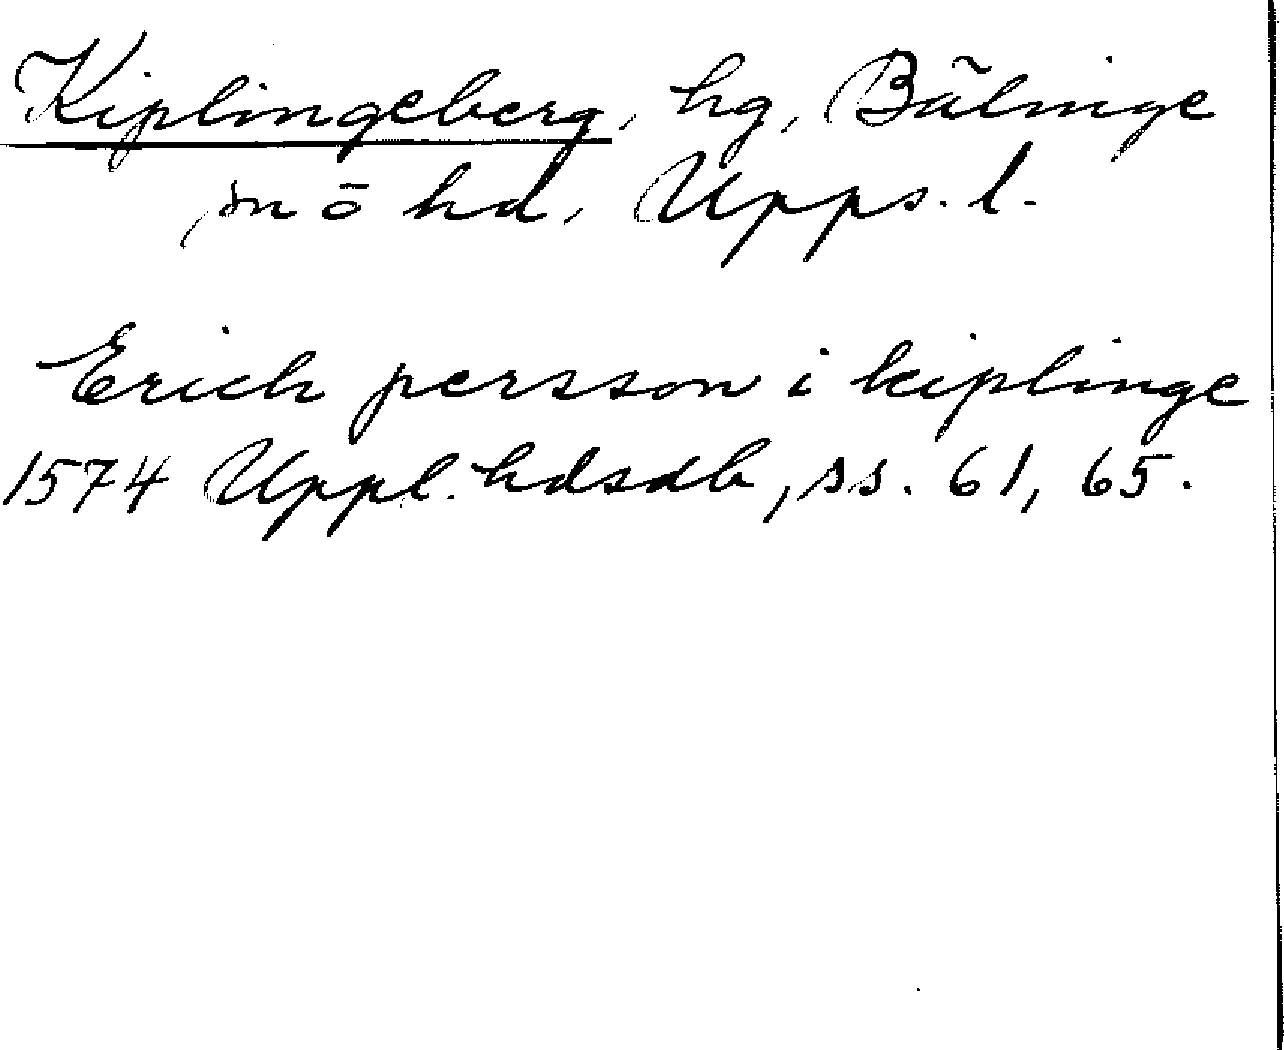 Kiplingeberg, hg, Bälinge
sn ö hd, Upps. l.
Erich persson i kiplinge
1574 Uppl. hdsdb, ss. 61, 65.